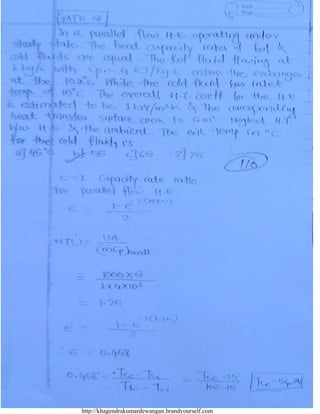 GATE 09
In a parallel flow H.E operating under
steady state. The heat capacity rates of hot &
cold fluids are equal. The hot fluid flowing at
1 kg/s with Cp = 4 KJ/kg K enters the exchanger
at the 102°C while the cold fluid has inlet
temp of 15°C. The overall H.T coeff for the H.E.
is estimated to be 1 kW/m²K & The corresponding
heat transfer surface area is 5m². Neglect H.T
b/w H.E & the ambient. The exit temp in °C
for the cold fluid is
a) 45°C b) 55 c) 65 d) 75
C = 1 Capacity rate ratio
For parallel flow H.E
ε = 1-e^-2(NTU) / 2
NTU = UA / (mCp)small
= 1000×5 / 1×4×10³
= 1.25
ε = 1-e^-2(1.25) / 2
∴ ε = 0.458
0.458 = Tce - Tci / Thi - Tci = Tce-15 / 102-15
http://khagendrakumardewangan.brandyourself.com